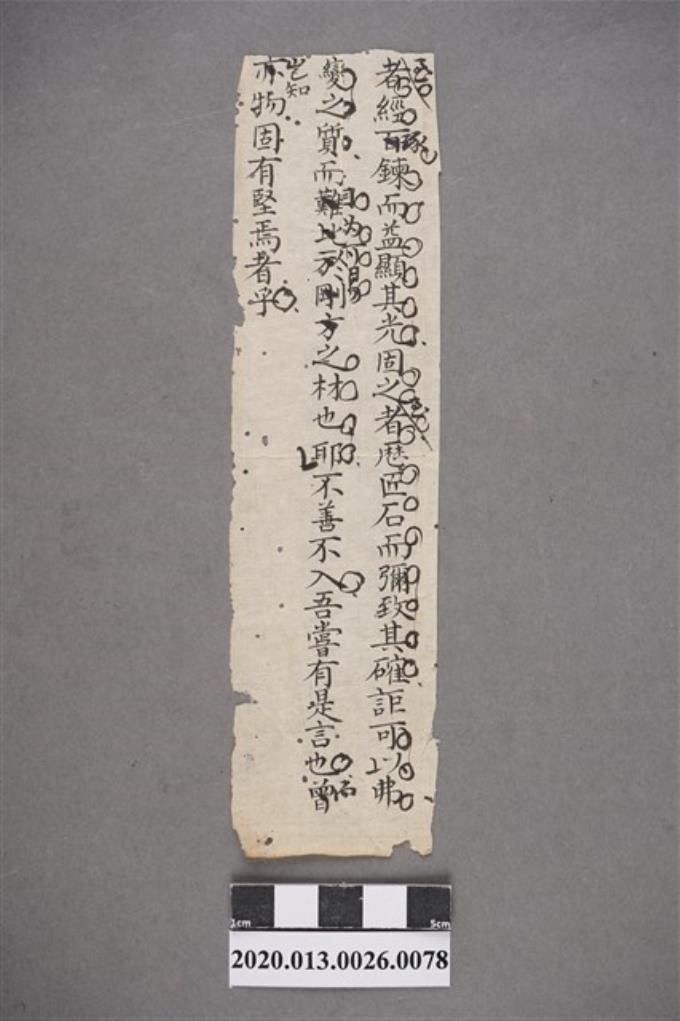 者經百鍊而益顯其光固之者歷匠石而彌致其確詎可以弗
琢
變之質而難比方剛方之材也耶不善不入吾嘗有是言也曾
因為所易
亦物固有堅焉者乎
豈知
1cm 5cm
2020.013.0026.0078